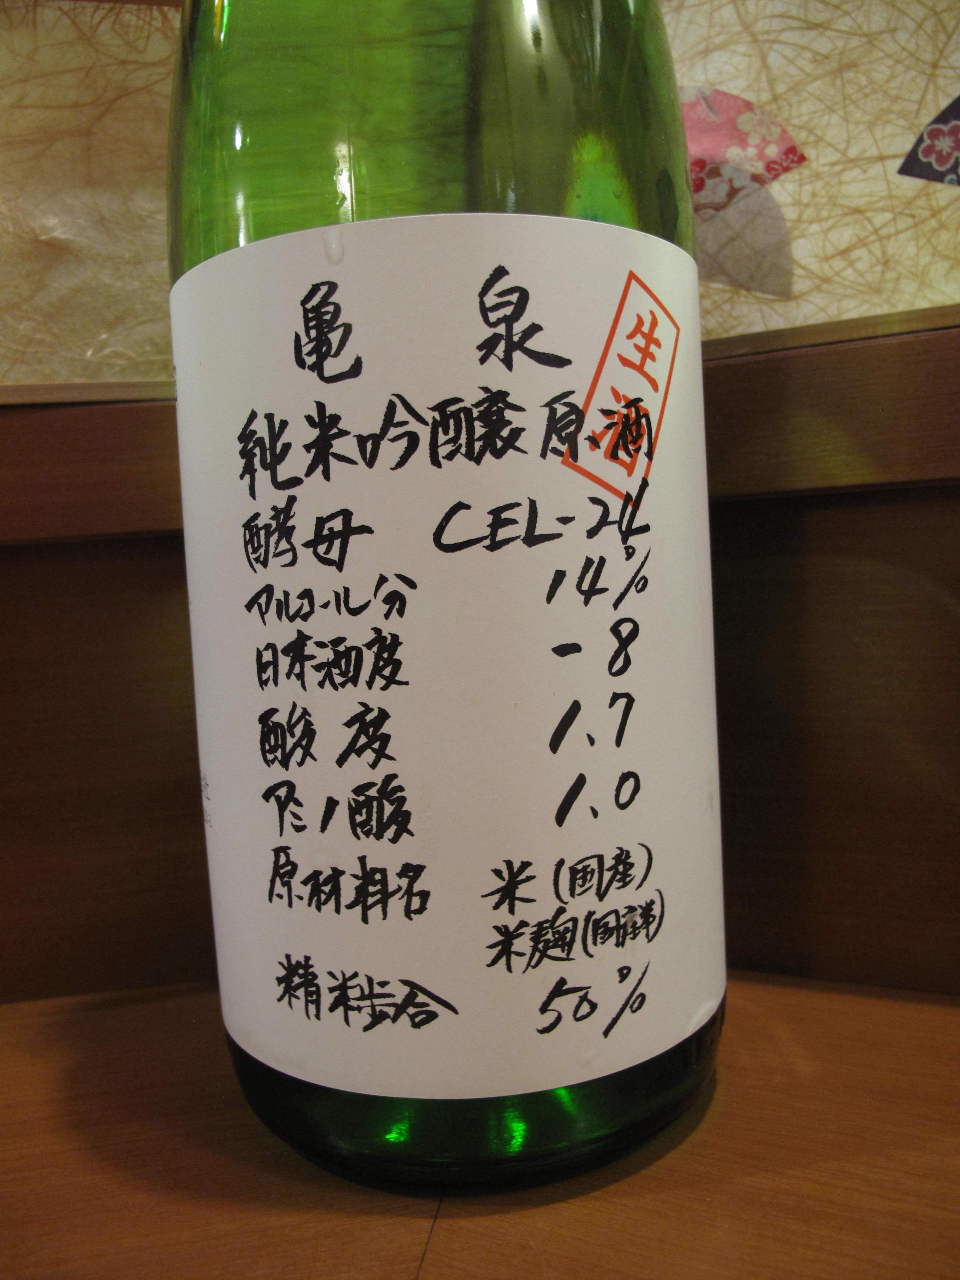 亀泉
生酒
純米吟醸原酒
酵母 CEL-24
アルコール分 14%
日本酒度 -8
酸度 1.7
アミノ酸 1.0
原材料名 米(国産)
米麹(国産米)
精米歩合 50%